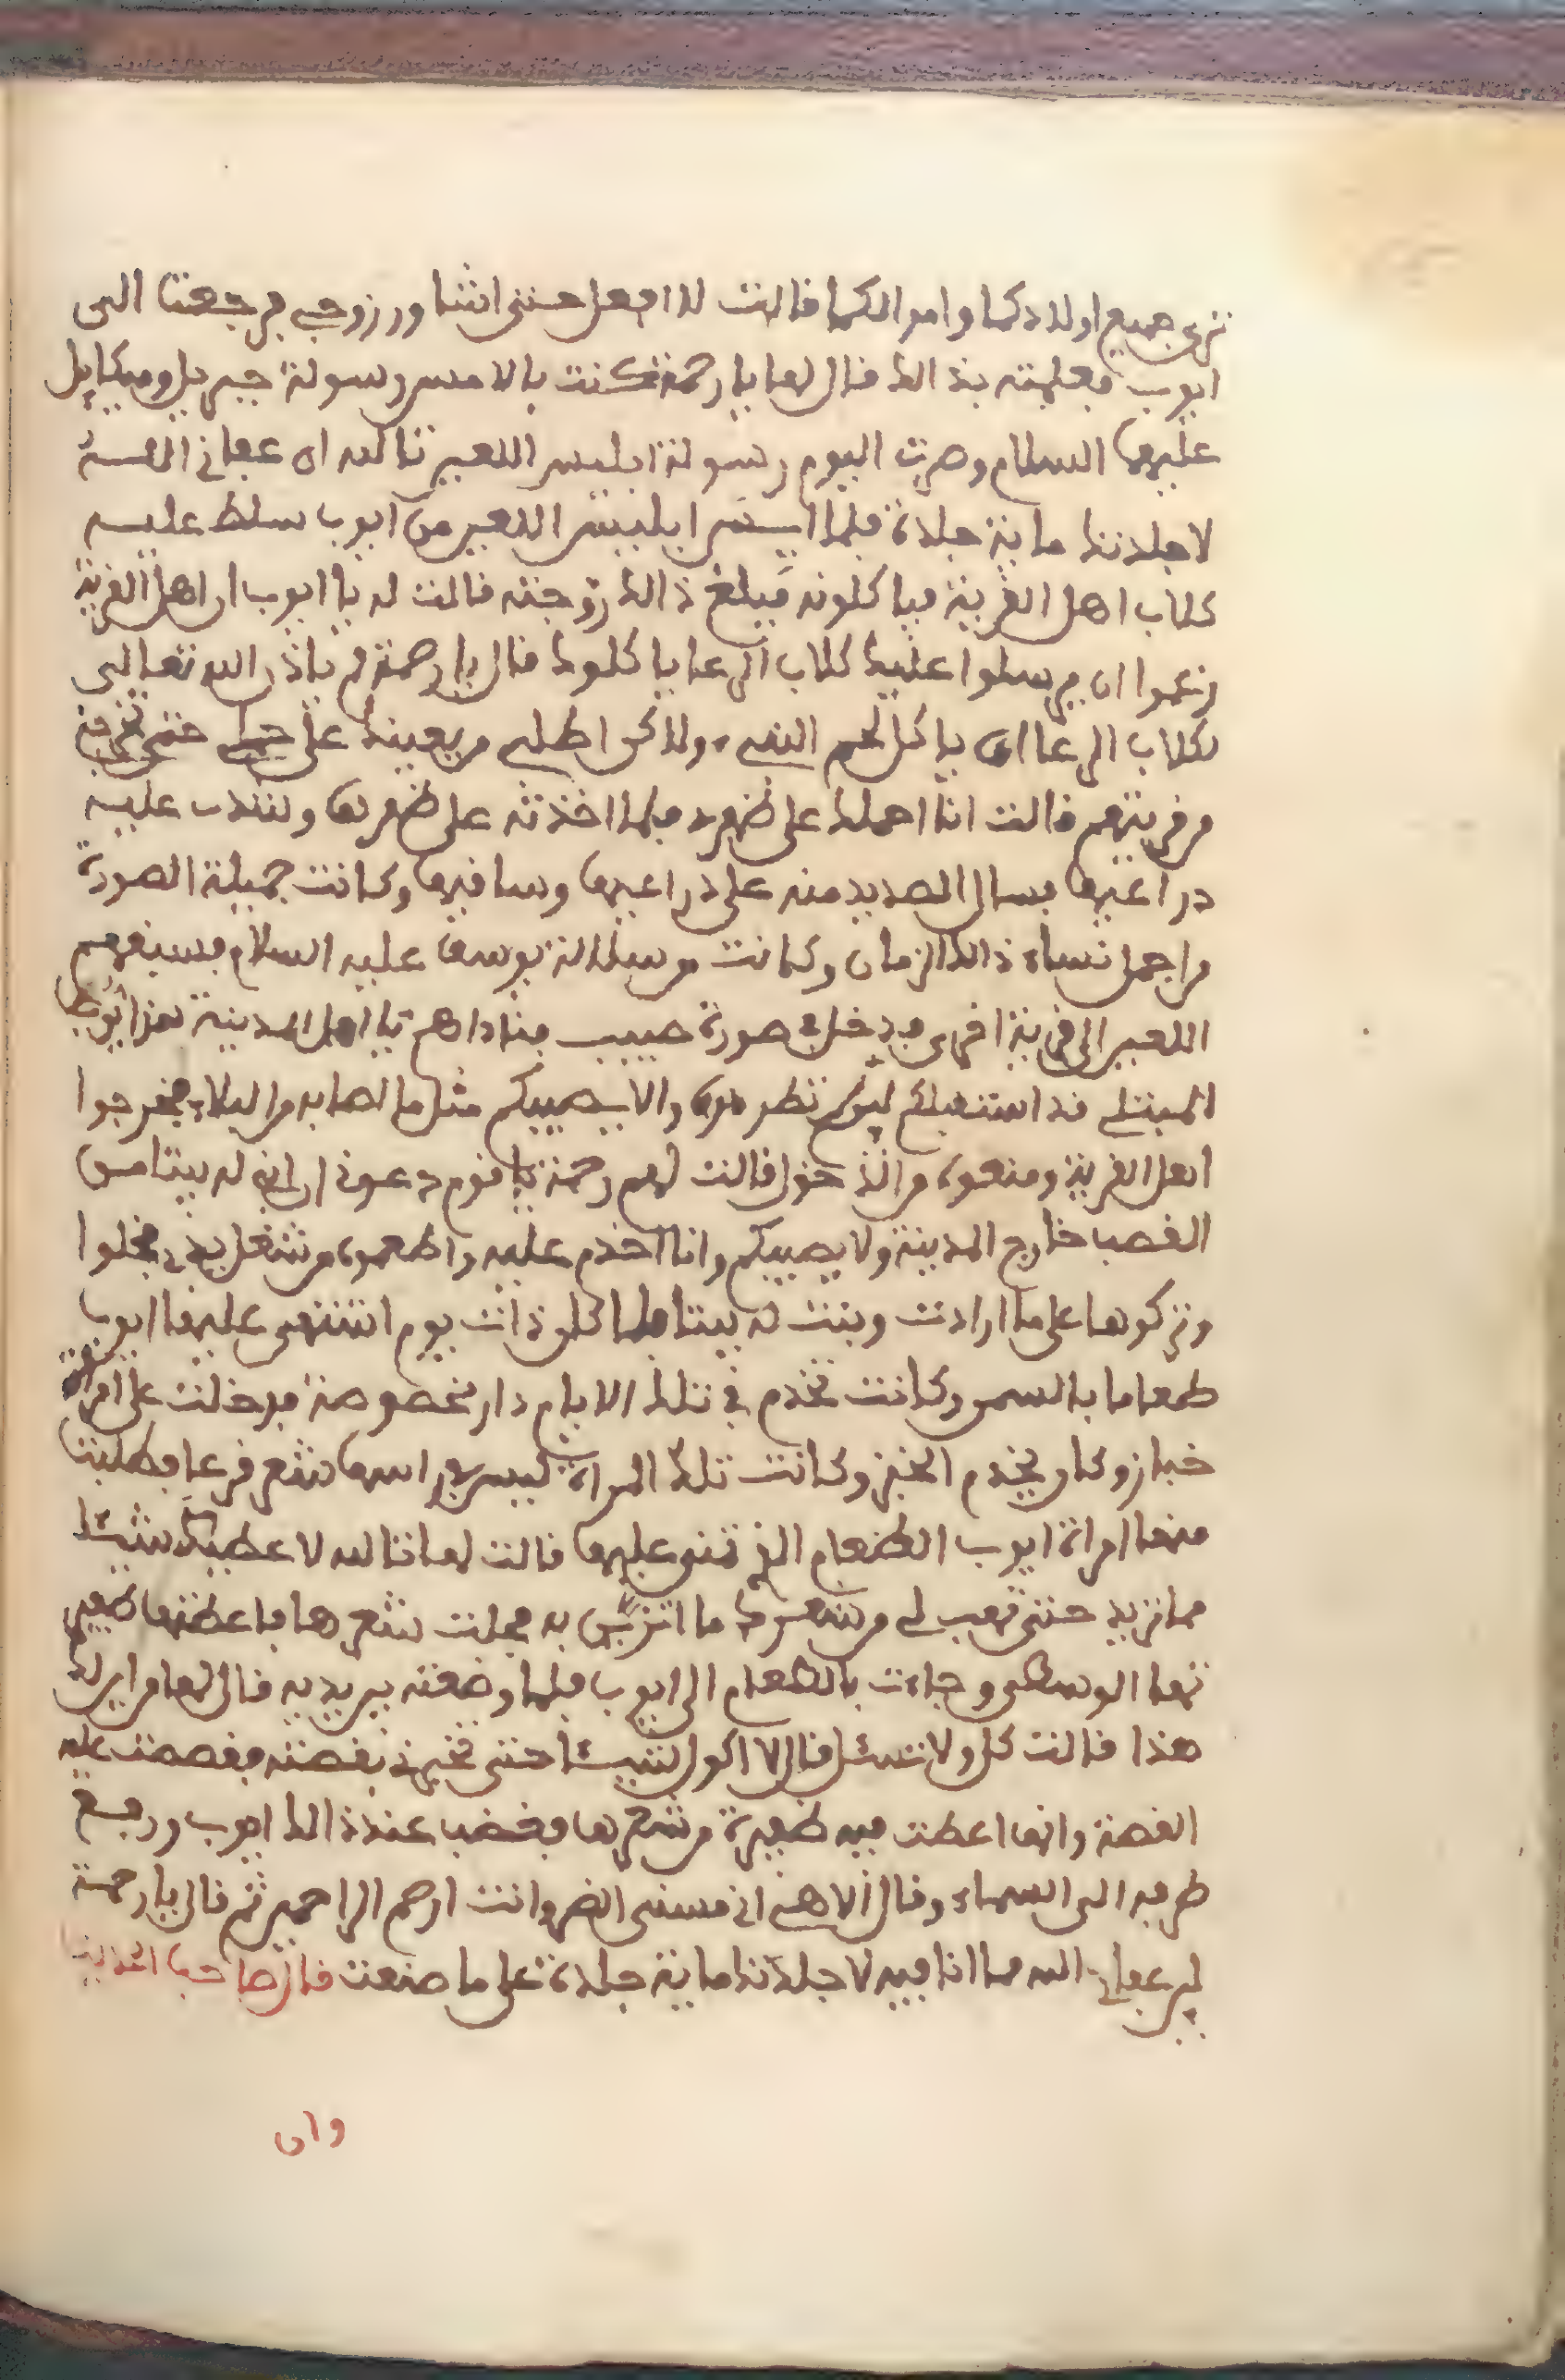 ترى جميع اولادكما واموالكما قالت لا افعل حتى اتشاور زوجي فرجعت الى
ايوب فعلمته بذالك فقال لها يا رحمة كنت بالامس رسولة جبريل وميكايل
عليهما السلام وصرت اليوم رسولة ابليس اللعين تالله ان عفاني الله
لاجلدنك ماية جلدة فلما ايس ابليس اللعين من ايوب سلط عليه
كلاب اهل القرية فياكلونه فبلغ ذالك زوجته قالت له يا ايوب ان اهل القرية
زعموا ان يرسلوا عليك كلاب الرعا ياكلوك قال يا رحمة لم ياذن الله تعالى
لكلاب الرعا ان ياكل لحم النبي ولاكن اطلبي من يعينك على حملي حتى تخرجني
من قريتهم قالت انا احملك على ظهري فلما اخذته على ظهرها وشدت عليه
دراعيها فسال الصديد منه على دراعيها وساقيها وكانت جميلة الصورة
من اجمل نساء ذالك الزمان وكانت من سلالة يوسف عليه السلام فسبقهم
اللعين الى قرية اخرى فدخل في صورة طبيب فناداهم يا اهل المدينة هذا ايوب
المبتلى قد استقبلكم ليوم تطردوه والا يصيبكم مثل ما اصابه من البلاء فخرجوا
اهل القرية ومنعوه من الدخول قالت لهم رحمة يا قوم دعوني ان ابني له بيتا من
القصب خارج المدينة ولا يصيبكم وانا اخدم عليه واطعمه من شغل يدي فخلوا
وتركوها على ما ارادت وبنت له بيتا فلما كان ذات يوم اشتهى عليها ايوب
طعاما بالسمن وكانت تخدم في تلك الايام دار مخصوصة فدخلت على امراة
خباز وكان يخدم الخبز وكانت تلك المراة ليس في راسها شعر قرعا فطلبت
منها امراة ايوب الطعام الذي تمنى عليها قالت لها تالله لا عطيتك شيئا
مما تريد حتى تهب لي من شعرك ما اتزين به فحلت شعرها فاعطتها ظفير
تها الوسطى وجاءت بالطعام الى ايوب فلما وضعته بين يديه قال لها من اين لك
هذا قالت كل ولا تسئل قال لا اكول شيئا حتى تخبرني بقصته فقصصت عليه
القصة وانها اعطت فيه ظفيرة من شعرها فغضب عند ذالك ايوب ورفع
طرفه الى السماء وقال الاهي اني مسني الضر وانت ارحم الراحمين ثم قال يا رحمة
لين عفاني الله مما انا فيه لاجلدنك ماية جلدة على ما صنعت قال صاحب الحديث
وان